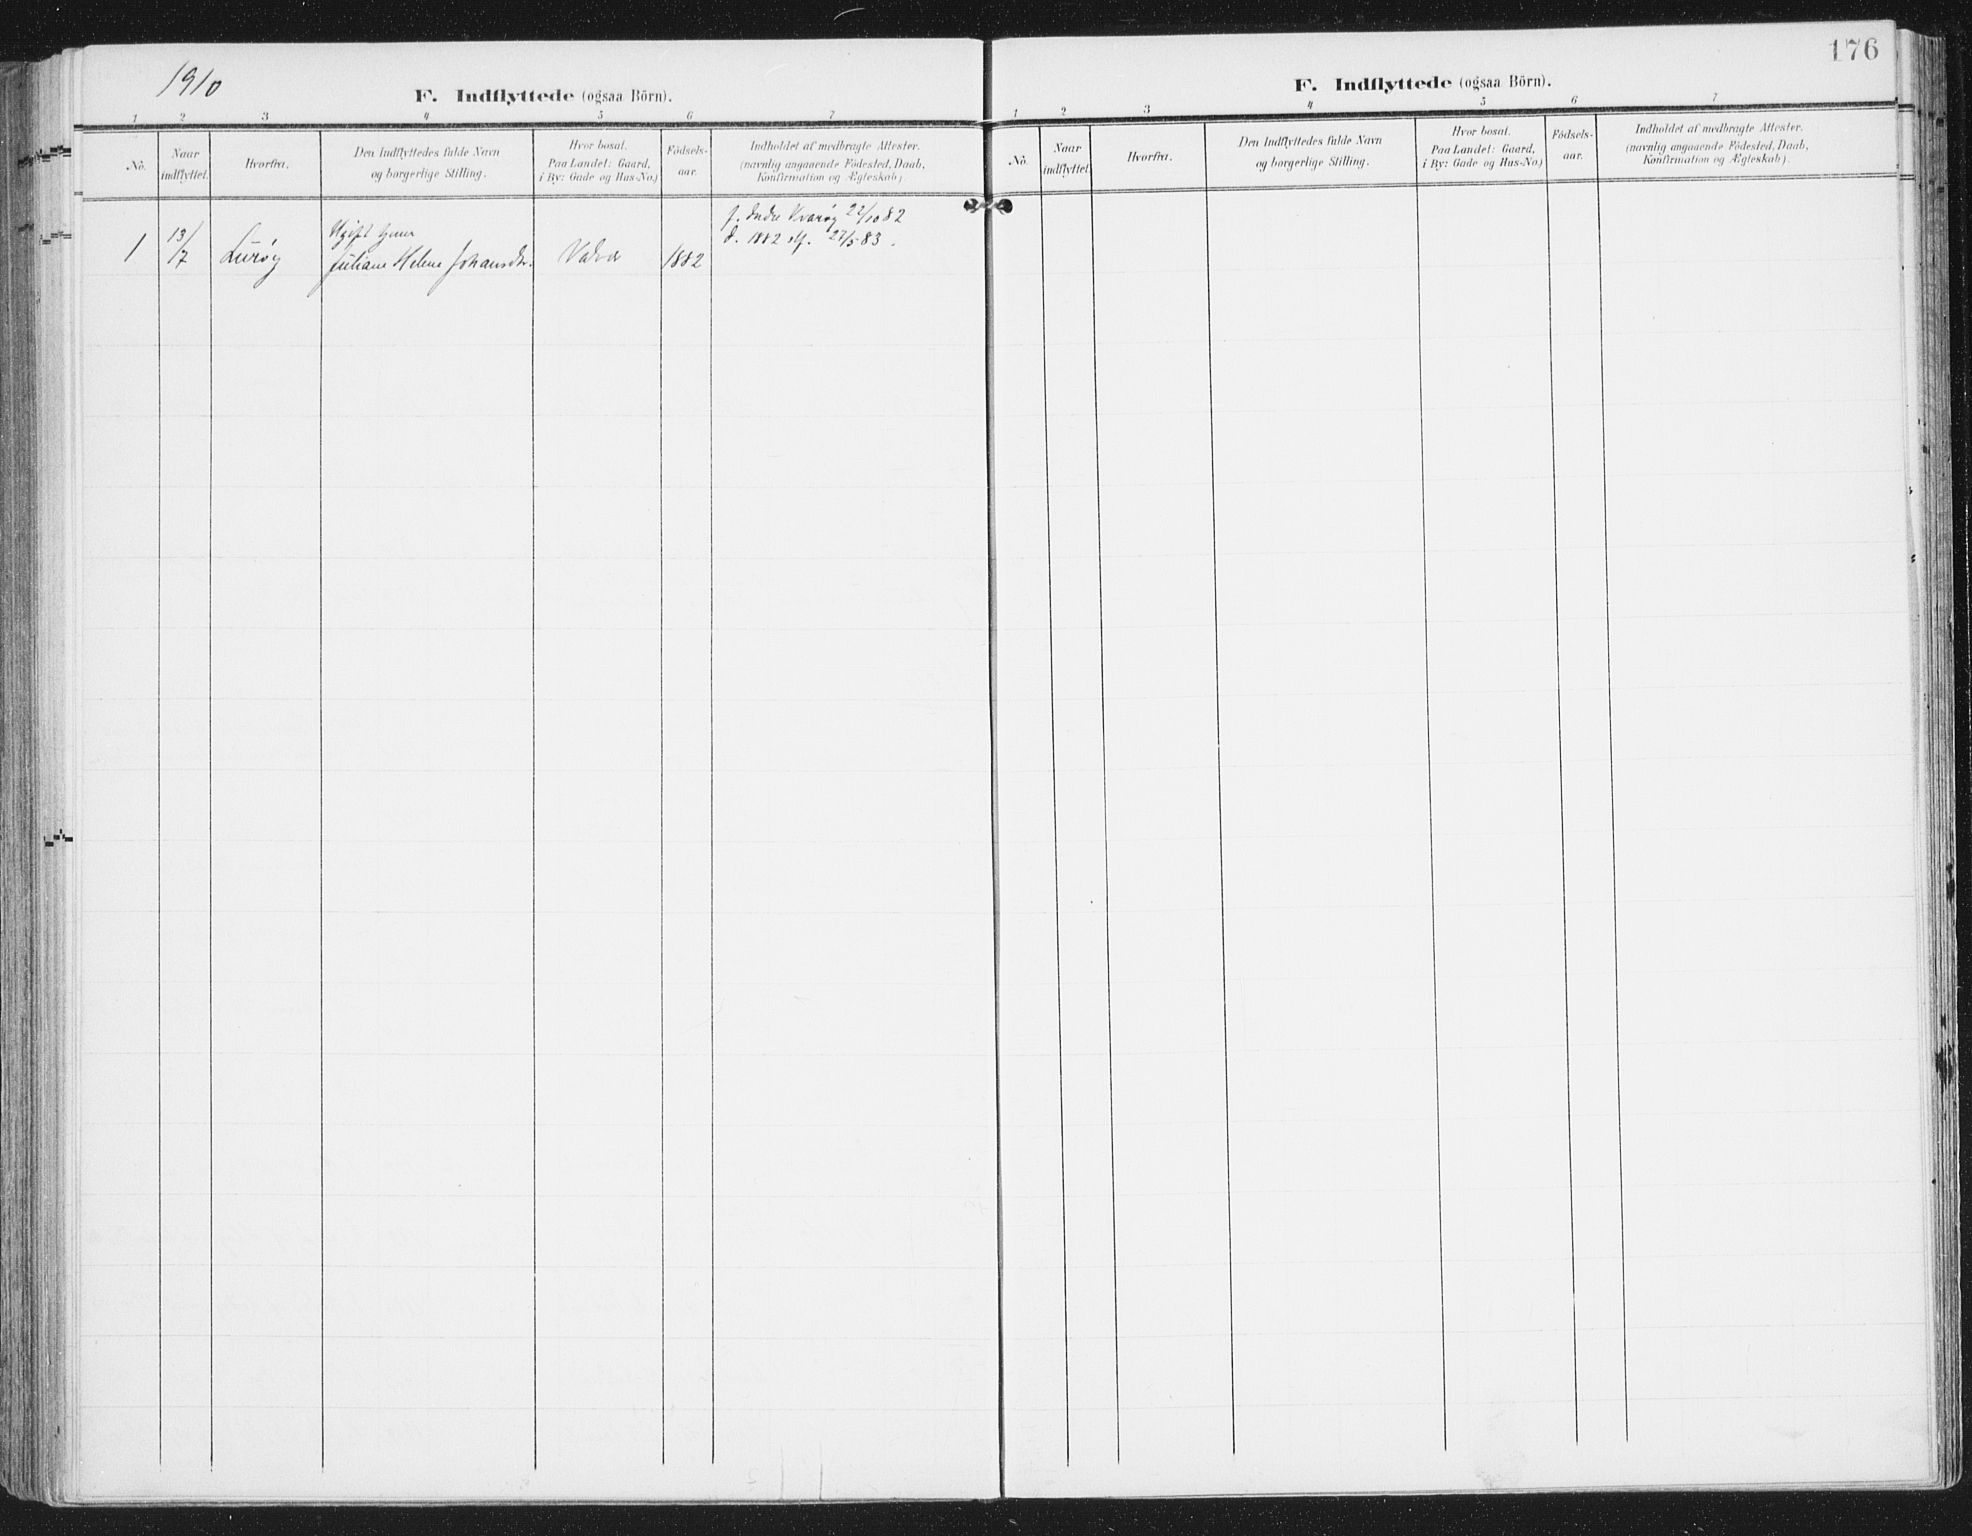 1910
F. Indflyttede (ogsaa Börn).
1 2 3 4 5 6 7
No.
Naar
indflyttet.
Hvorfra.
Den Indflyttedes fulde Navn
og borgerlige Stilling.
Hvor bosat.
Paa Landet: Gaard,
i By: Gade og Hus-No.)
Födsels-
aar.
Indholdet af medbragte Attester.
(navnlig angaaende Födested, Daab,
Konfirmation og Ægteskab).
1
13/7
Lurøy
Ugift
Juliane Helene Johansdtr.
1882
f. Indre Kvarøy 22/10 82
d. 1882 27/5 83.
176
F. Indflyttede (ogsaa Börn).
1 2 3 4 5 6 7
No.
Naar
indflyttet.
Hvorfra.
Den Indflyttedes fulde Navn
og borgerlige Stilling.
Hvor bosat.
Paa Landet: Gaard,
i By: Gade og Hus-No.)
Födsels-
aar.
Indholdet af medbragte Attester.
(navnlig angaaende Födested, Daab,
Konfirmation og Ægteskab).